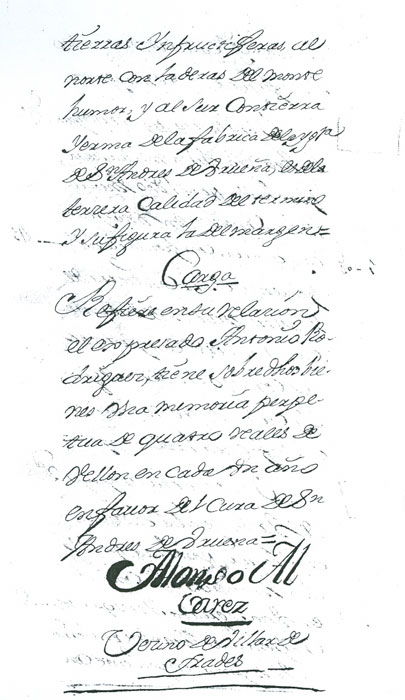 tierras Ynfructiferas, al
norte con laderas del monte
humor, y al sur Con tierra
yerma de la fabrica de la ygla
de Sn Andres de Drueña, es de la
terzera Calidad del termino
Y su figura la del margen=
Carga
Refiere en su relazion
el expresado Antonio Ro-
driguez, tiene sobre dhos vie-
nes Una memoria perpe-
tua de quatro reales de
Vellon en cada un año
en favor del Cura de Sn
Andres de Drueña=
Alonso Al
varez
Vezino de Villar de
frades